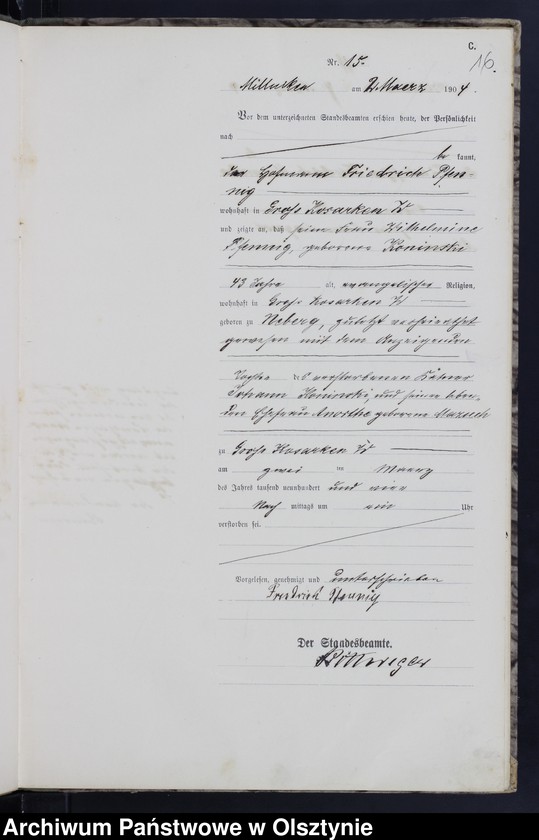 C.
16.
Nr. 15.
am 2 Maerz 1904.
Vor dem unterzeichneten Standesbeamten erschien heute, der Persönlichkeit
nach
be kannt,
der Hofmann Friedrich Pfen-
nig
wohnhaft in Groß Kosarken W
und zeigte an, daß seine Frau Wilhelmine
Pfennig, geborene Koninski
43 Jahre alt, evangelischer Religion,
wohnhaft in Groß Kosarken W
geboren zu zuletzt verheirathet
gewesen mit dem Anzeigenden
Tochter des verstorbenen
Johann Koninski, und seiner leben-
den Ehefrau Anorthe geborene
zu Groß Kosarken W
am zwei ten Maerz
des Jahres tausend neunhundert und vier
Nach mittags um ein Uhr
verstorben sei.
Vorgelesen, genehmigt und unterschrieben
Friedrich Pfennig
Der Standesbeamte.
Archiwum Państwowe w Olsztynie